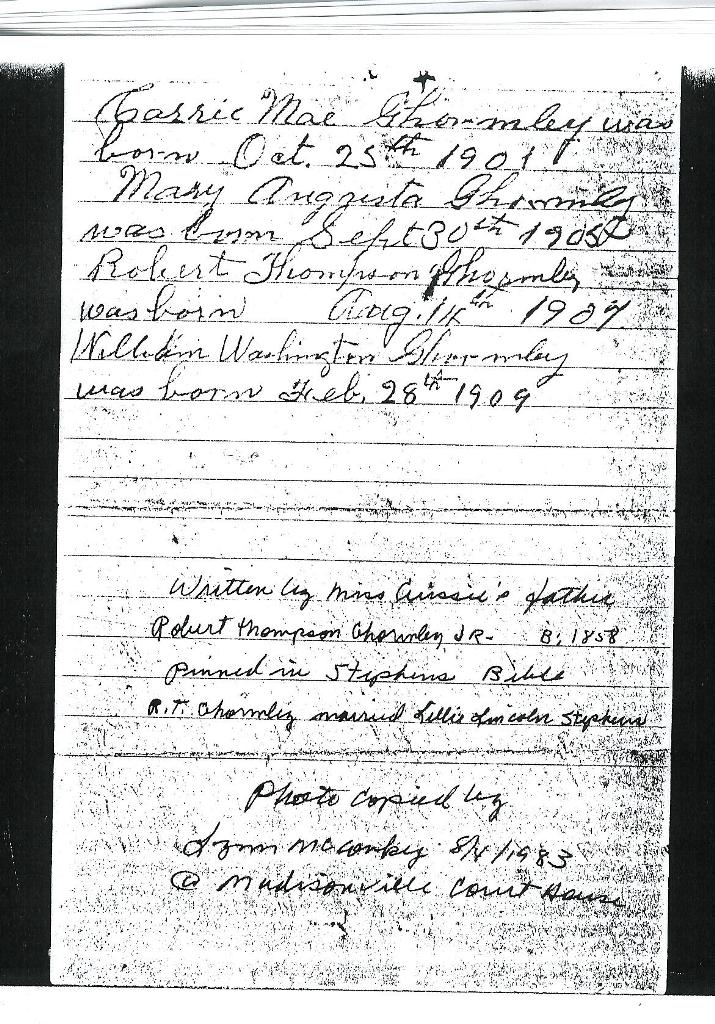 Carrie Mae Ghormley was
born Oct. 25th 1901
Mary Augusta Ghormley
was born Sept 30th 1905
Robert Thompson Ghormley
was born Aug. 14th 1907
William Washington Ghormley
was born Feb. 28th 1909
Written by Miss Gussie's father
Robert Thompson Ghormley, JR- B; 1858
pinned in Stephens Bible
R.T. Ghormley married Lillie Lincoln Stephens
Photo copied by
Lynn McConkey 8/4/1983
@ Madisonville Court House